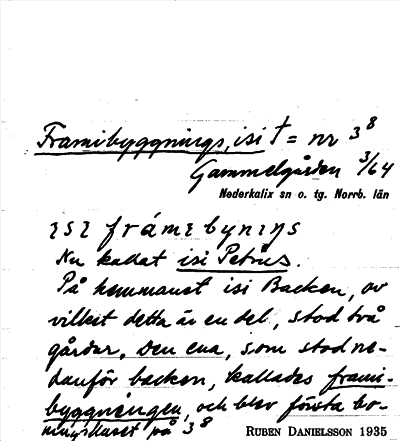 Framibyggnings, isi † = nr 3⁸
Gammelgården 3/64
Nederkalix sn o. tg. Norrb. län
Nu kallat isi Petrus.
På hemmanet isi Backen, av
vilket detta är en del, stod två
gårdar. Den ena, som stod ne-
danför backen, kallades frami-
byggningen, och blev första bo-
ningshuset på 3⁸
RUBEN DANIELSSON 1935